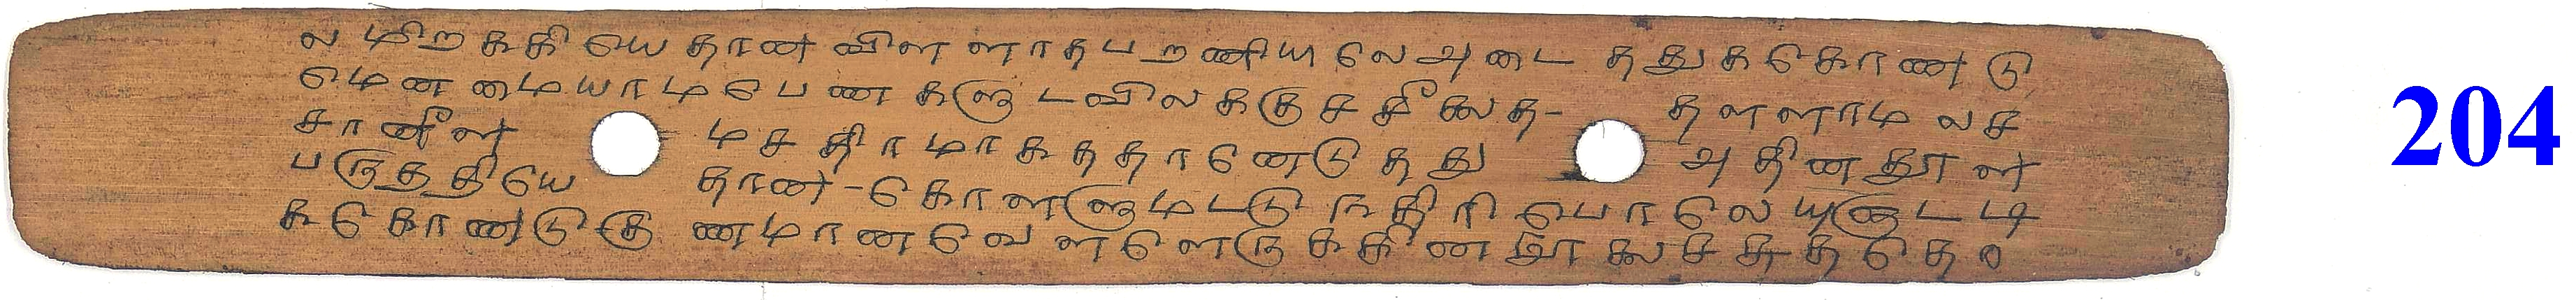 ல மிறககியெ தான விள ளாத ப றணியி லெ அடை தது க கொண டு
மென மையாம பெண களு டவில ககு ச சீலை த- த ளளாம ல ச
சானீள ம ச திர மாக த தானெடு த து அ தின தூள
ப ருத தியெ தான - கொ ளளுமடடு ந திரி பொலெ யுருடடி
க கொண்டு கு ணமான வெள ளெரு ககின இலை ச ச த தெ
204